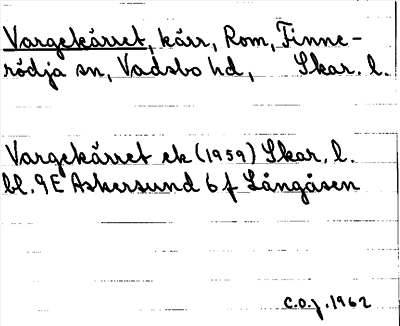 Vargekärret, kärr, Rom, Finne-
rödja sn, Vadsbo hd, Skar. l.
Vargekärret ek (1959) Skar. l.
bl. 9E Askersund 6 f Långåsen
C.O.J. 1962